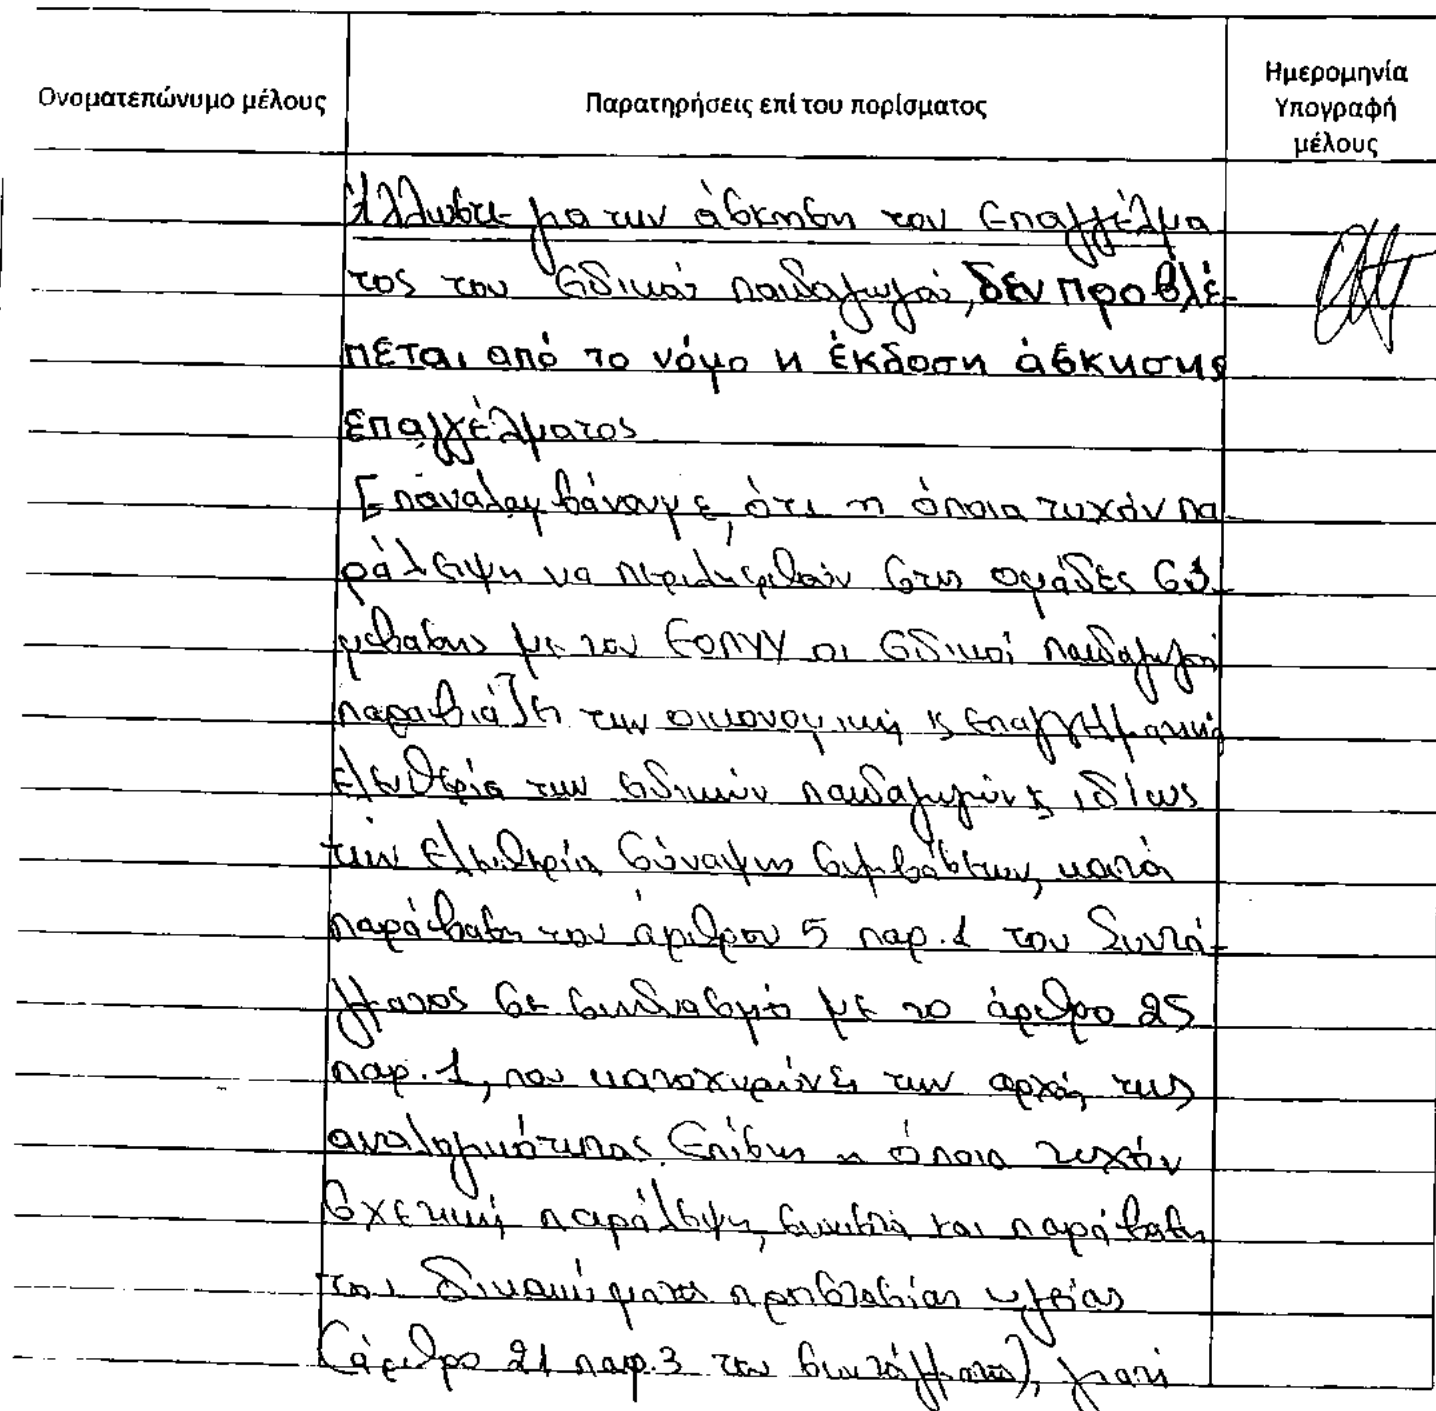 Ονοματεπώνυμο μέλους
Παρατηρήσεις επί του πορίσματος
Ημερομηνία
Υπογραφή
μέλους
Άλλωστε για την άσκηση του επαγγέλμα
τος του ειδικού παιδαγωγού, δεν προβλέ-
πεται από το νόμο η έκδοση άσκησης
επαγγέλματος
Επαναλαμβάνουμε, ότι η όποια τυχόν πα-
ράλειψη να περιληφθούν στις ομάδες σύ-
μβασης με τον ΕΟΠΥΥ οι ειδικοί παιδαγωγοί
παραβιάζει την οικονομική κ επαγγελματική
ελευθερία των ειδικών παιδαγωγών κ ιδίως
την ελευθερία σύναψης συμβάσεων, κατά
παράβαση του άρθρου 5 παρ. 1 του Συντά-
γματος σε συνδυασμό με το άρθρο 25
παρ. 1, που κατοχυρώνει την αρχή της
αναλογικότητας. Επίσης η όποια τυχόν
σχετική παράλειψη, συνιστά και παράβαση
του δικαιώματος προστασίας υγείας
(άρθρο 21 παρ. 3 του συντάγματος), γιατί